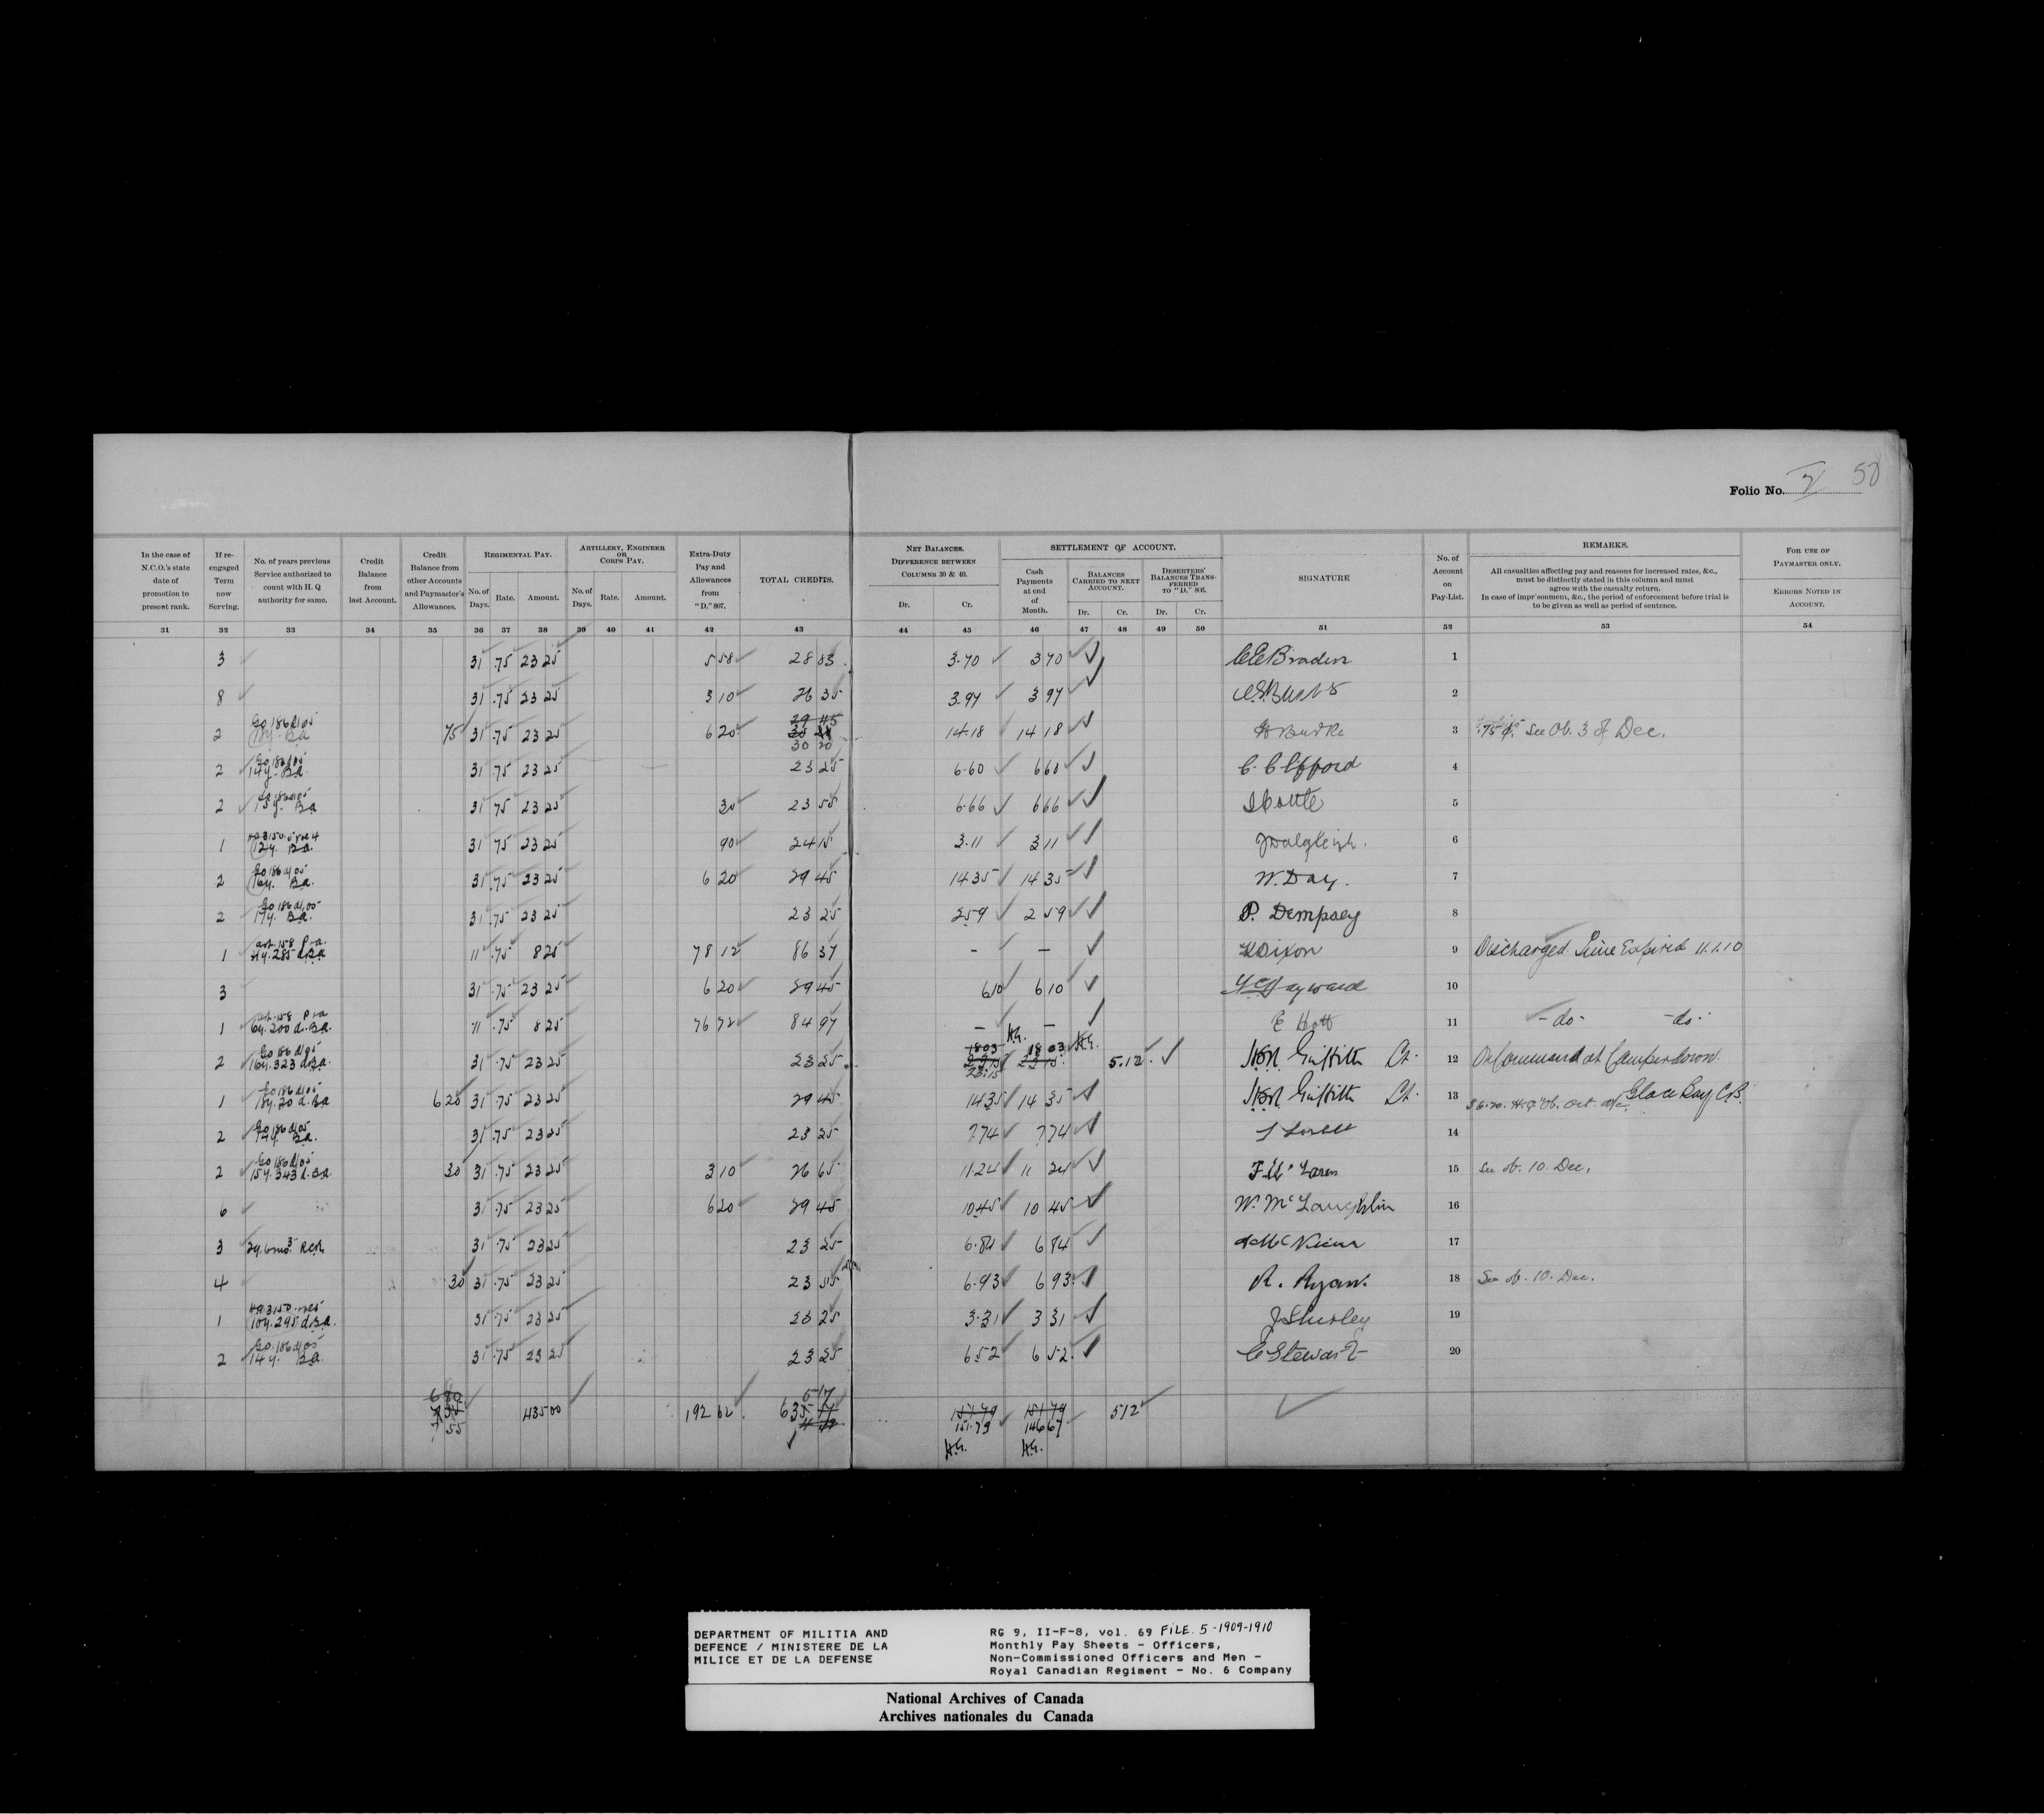 Folio No. 2 50
In the case of N.C.O.'s state date of promotion to present rank.
If re-engaged Term now Serving.
No. of years previous Service authorized to count with H. Q authority for same.
Credit Balance from last Account.
Credit Balance from other Accounts and Paymaster's Allowances.
REGIMENTAL PAY.
No. of Days. Rate. Amount.
ARTILLERY, ENGINEER OR CORPS PAY.
No. of Days. Rate. Amount.
Extra-Duty Pay and Allowances from "D." 807.
TOTAL CREDITS.
NET BALANCES. DIFFERENCE BETWEEN COLUMNS 30 & 40.
Dr. Cr.
SETTLEMENT OF ACCOUNT.
Cash Payments at end of Month.
BALANCES CARRIED TO NEXT ACCOUNT.
Dr. Cr.
DESERTERS' BALANCES TRANSFERRED TO "D." 808.
Dr. Cr.
SIGNATURE
No. of Account on Pay-List.
REMARKS.
All casualties affecting pay and reasons for increased rates, &c., must be distinctly stated in this column and must agree with the casualty return.
In case of impr'sonment, &c., the period of enforcement before trial is to be given as well as period of sentence.
FOR USE OF PAYMASTER ONLY.
ERRORS NOTED IN ACCOUNT.
31 32 33 34 35 36 37 38 39 40 41 42 43 44 45 46 47 48 49 50 51 52 53 54
3 31 .75 23 25 5 58 28 83 3.70 3 70 1
8 31 .75 23 25 3 10 26 35 3.97 3 97 2
2 Go 186 d/05 18y. Ba 75 31 .75 23 25 6 20 29 45 30 20 14.18 14 18 H Burke 3 .75¢. See Ob. 3 of Dec.
2 Go 186 d/05 14y. Ba. 31 .75 23 25 23 25 6.60 6 60 C. Clifford 4
2 Go 186 d/05 15y. Ba 31 75 23 25 30 23 55 6.66 6 66 5
1 12y. Ba. 31 75 23 25 90 24 15 3.11 3 11 J Dalgleish. 6
2 Go 186 d/05 16y. Ba. 31 .75 23 25 6 20 29 45 14 35 14 35 W. Day. 7
2 Go 186 d/05 17y. Ba. 31 .75 23 25 23 25 2 59 2 59 P. Dempsey 8
1 art. 158 P&a. 285 d Ba 11 .75 8 25 78 12 86 37 - - Dixon 9 Discharged Time Expired 11.1.10
3 31 .75 23 25 6 20 29 45 6 10 6 10 Hayward 10
1 art. 158 P&a 6y. 200 d. Ba. 11 .75 8 25 76 72 84 97 - - E Hott 11 - do - - do -
2 Go 186 d/05 16y. 323 d Ba. 31 .75 23 25 23 25 18 03 23 15 H.G. 18 03 23 15 H.G. 5.12 Griffith Lt. 12 On Command at Camperdown.
1 Go 186 d/05 18y. 20 d. Ba 6 20 31 .75 23 25 29 45 14 35 14 35 Griffith Lt. 13 Glace Bay C.B.
2 Go 186 d/05 14y. Ba. 31 .75 23 25 23 25 7.74 7 74 14
2 Go 186 d/05 15y. 343 d. Ba. 30 31 .75 23 25 3 10 26 65 11 24 11 24 15 See ob. 10. Dec.
6 31 .75 23 25 6 20 29 45 10 45 10 45 W. McLaughlin 16
3 2y. 6 mos. RCR 31 .75 23 25 23 25 6.84 6 84 17
4 30 31 .75 23 25 23 55 6.93 6 93 R. Ryan. 18 See ob. 10. Dec.
1 10y. 295 d Ba. 31 .75 23 25 23 25 3.31 3 31 J Shirley 19
2 Go. 186 d/05 14y. Ba. 31 .75 23 25 23 25 6 52 6 52 C Stewart 20
6 80 7 55 435 00 192 62 635 17 151.79 H.G. 151 79 146 67 H.G. 5 12
DEPARTMENT OF MILITIA AND
DEFENCE / MINISTERE DE LA
MILICE ET DE LA DEFENSE
RG 9, II-F-8, vol. 69 FILE. 5 - 1909-1910
Monthly Pay Sheets - Officers,
Non-Commissioned Officers and Men -
Royal Canadian Regiment - No. 6 Company
National Archives of Canada
Archives nationales du Canada